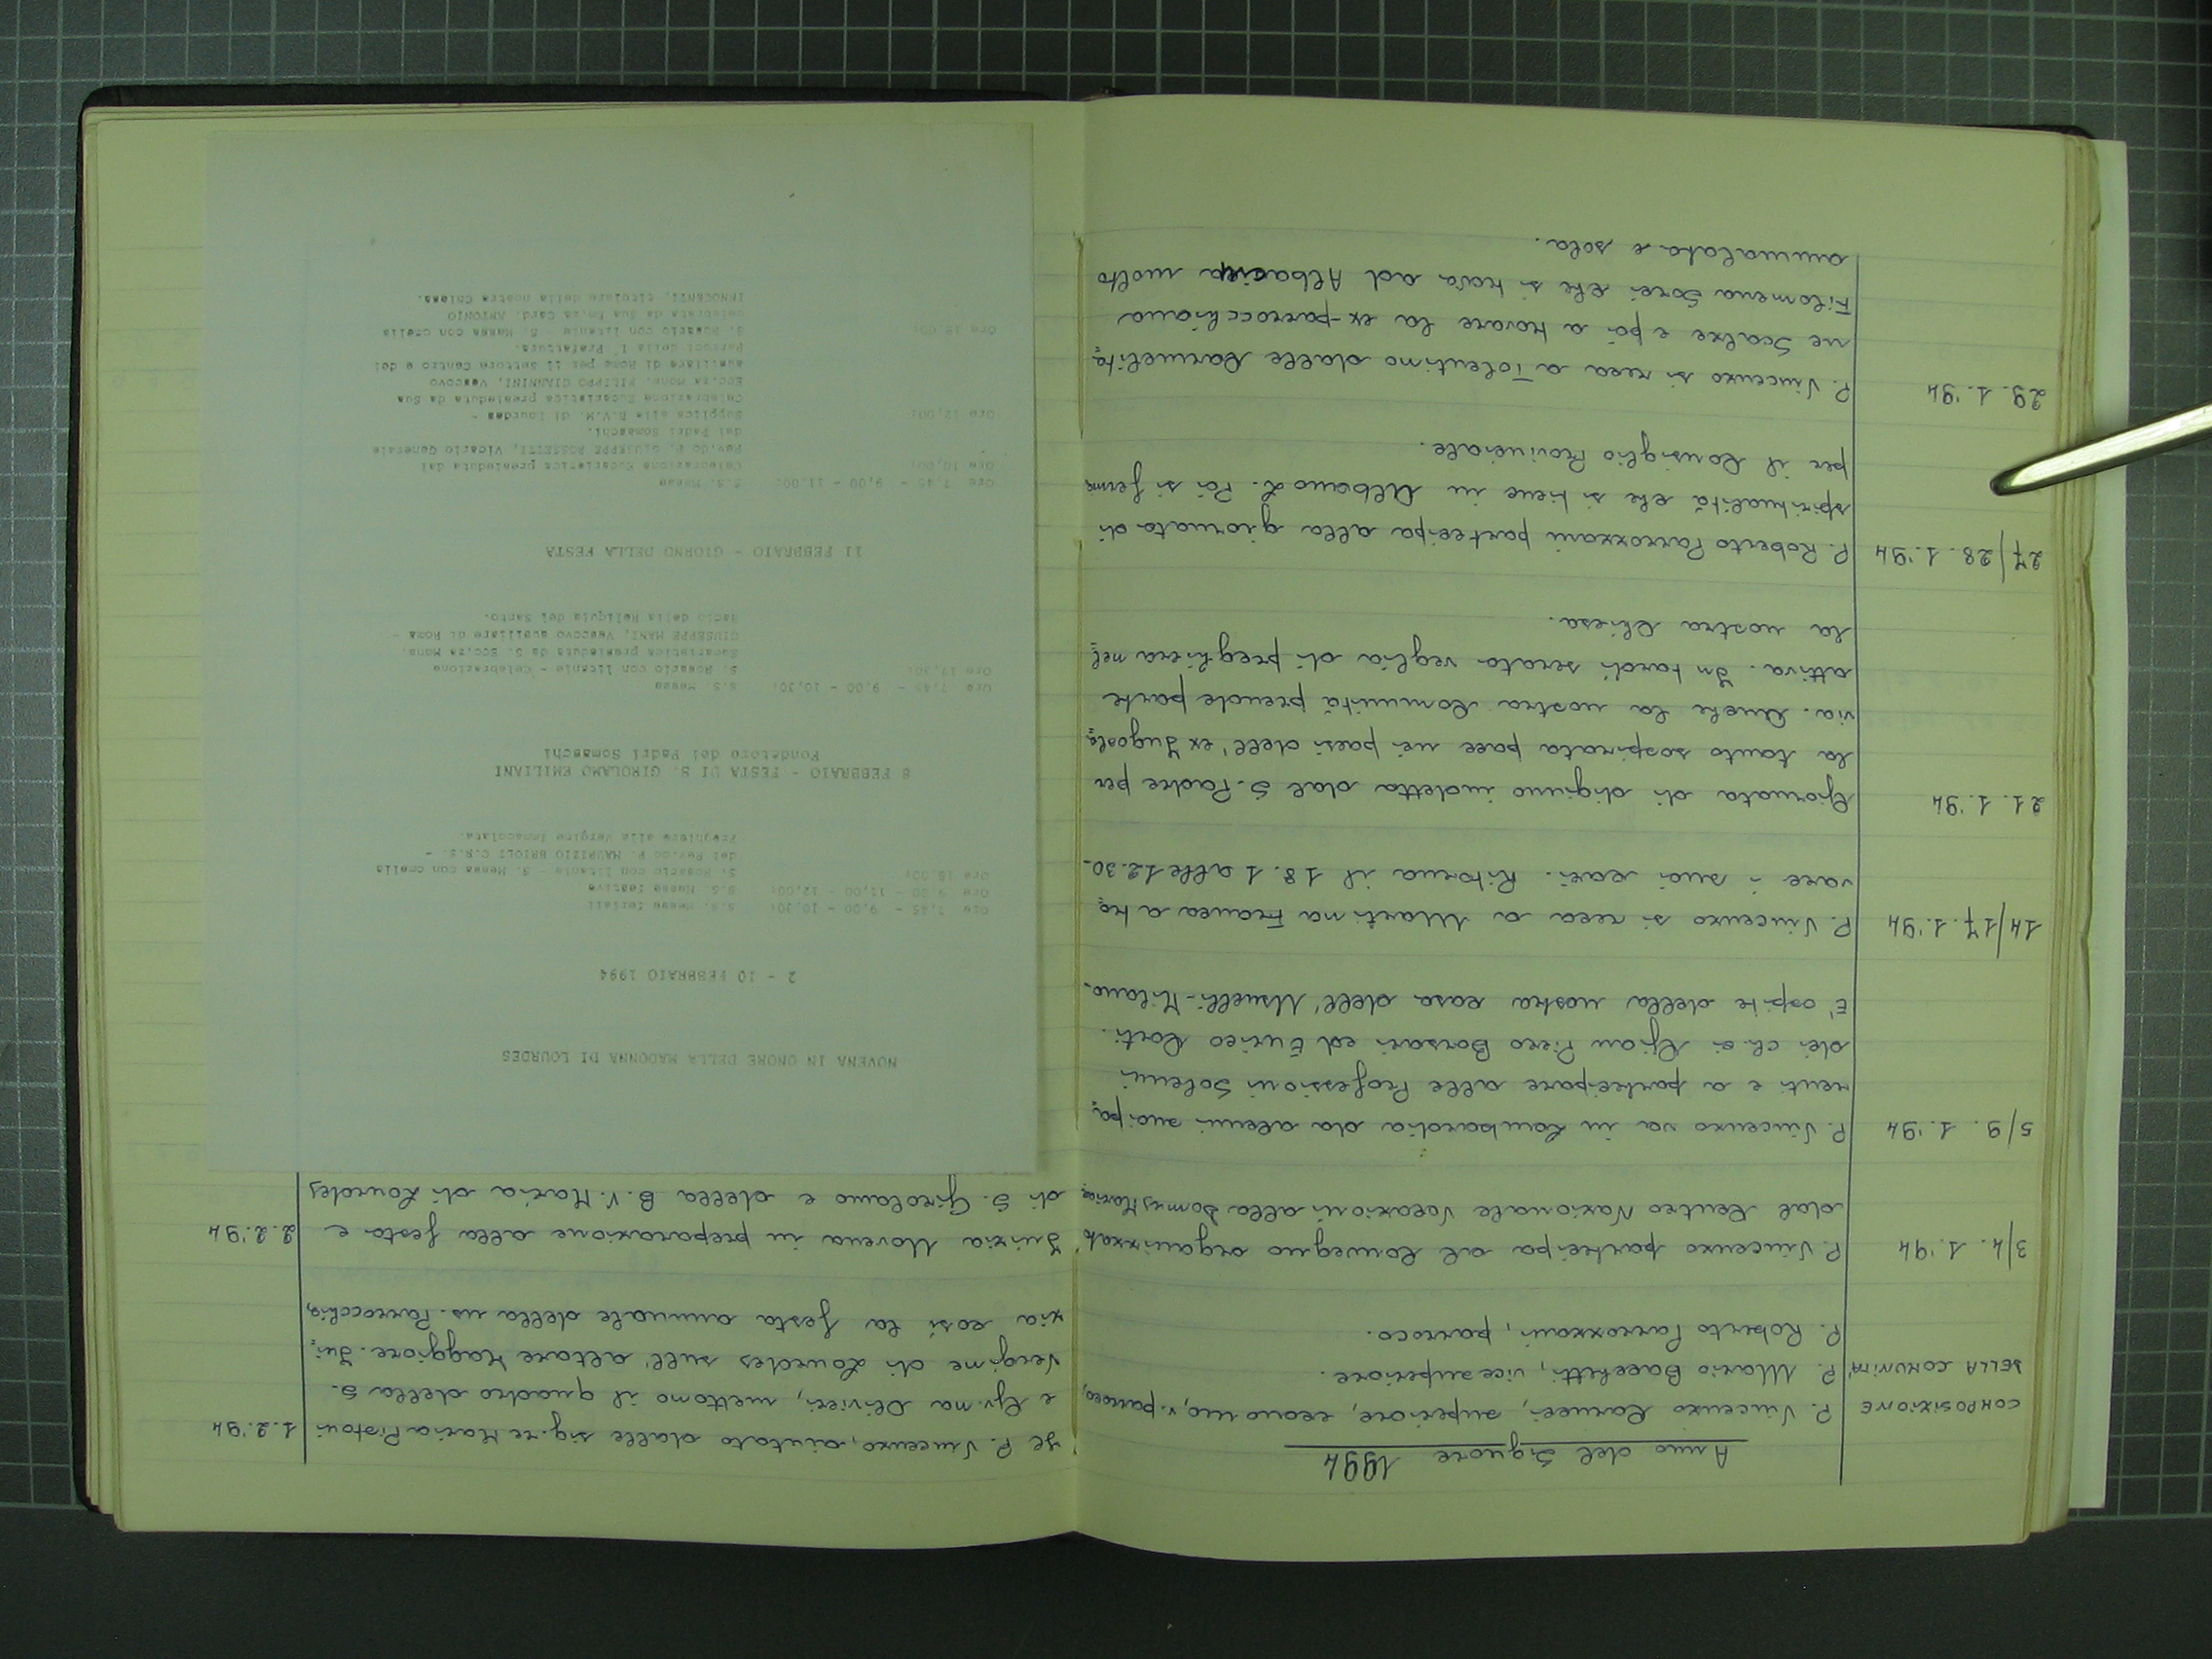 Anno del Signore 1994
COMPOSIZIONE P. Vincenzo, superiore, economo, v. parroco,
DELLA COMUNITÀ P. Mario Bacchetti, vicesuperiore.
P. Roberto Parrozzani, parroco.
3/4. 1. '94 P. Vincenzo partecipa al Convegno organizzato
dal Centro Nazionale Vocazioni alla Domus Mariae
5/9. 1. '94 P. Vincenzo va in Lombardia da alcuni suoi pa=
renti e a partecipare alle Professioni Solenni
dei ch.ci Gian Piero Borsari ed Enrico Corti.
E' ospite della nostra casa dell'Usuelli-Milano.
14/17. 1. '94 P. Vincenzo si reca a Martina Franca a tro=
vare i suoi cari. Ritorna il 18. 1 alle 12.30.
21. 1. '94 Giornata di digiuno indetta dal S. Padre per
la tanto sospirata pace nei paesi dell'ex Jugosla=
via. Anche la nostra Comunità prende parte
attiva. In tardi serata veglia di preghiera nel=
la nostra Chiesa.
27/28. 1. '94 P. Roberto Parrozzani partecipa alla giornata di
spiritualità che si tiene in Albano L. Poi si ferma
per il Consiglio Provinciale.
29. 1. '94 P. Vincenzo si reca a Tolentino dalle Carmelita=
ne Scalze e poi a trovare la ex-parrocchiana
Filomena Sorei che si trova ad molto
ammalata e sola.
Il P. Vincenzo, aiutato dalle sig.re Maria Pistoni 1. 2. '94
e Gv.na Olivieri, mettono il quadro della S.
Vergine di Lourdes sull'altare Maggiore. Ini=
zia così la festa annuale della ns. Parrocchia.
Inizia Novena in preparazione alla festa e 2. 2. '94
di S. Girolamo e della B. V. Maria di Lourdes
NOVENA IN ONORE DELLA MADONNA DI LOURDES
2 - 10 FEBBRAIO 1994
Ore 7,45 - 9,00 - 10,30: S.S. Messe feriali
Ore 9.00 - 11,00 - 12,00: S.S. Messe festive
Ore 18,00: S. Rosario con litanie - S. Messa con omelia
del Rev.do P. MAURIZIO BRIOLI C.R.S. -
Preghiere alla Vergine Immacolata.
8 FEBBRAIO - FESTA DI S. GIROLAMO EMILIANI
Fondatore dei Padri Somaschi
Ore 7,45 - 9,00 - 10,30: S.S. Messe
Ore 17,30: S. Rosario con litanie - Celebrazione
Eucaristica presieduta da S. Ecc.za Mons.
GIUSEPPE MANI, Vescovo ausiliare di Roma -
Bacio della Reliquia del Santo.
11 FEBBRAIO - GIORNO DELLA FESTA
Ore 7,45 - 9,00 - 11,00: S.S. Messe
Ore 10,00: Celebrazione Eucaristica presieduta dal
Rev.do P. GIUSEPPE ROSSETTI, Vicario Generale
dei Padri Somaschi.
Ore 12,00: Supplica alla B.V.M. di Lourdes -
Celebrazione Eucaristica presieduta da Sua
Ecc.za Mons. FILIPPO GIANNINI, Vescovo
ausiliare di Roma per il Settore Centro e dei
Parroci della I^ Prefettura.
Ore 18,00: S. Rosario con litanie - S. Messa con omelia
celebrata da Sua Em.za Card. ANTONIO
INNOCENTI, titolare della nostra Chiesa.